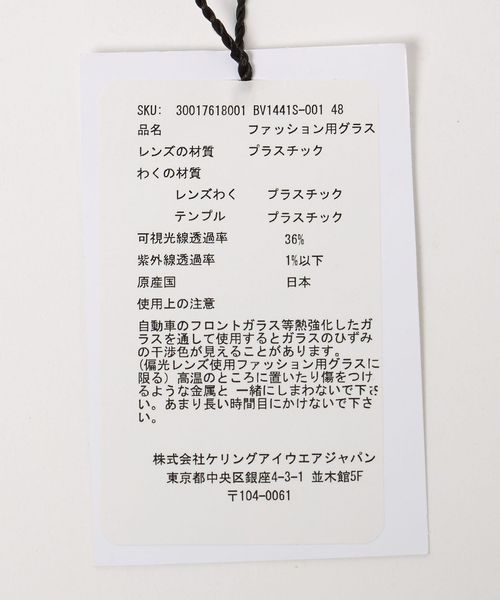 SKU: 30017618001 BV1441S-001 48
品名 ファッション用グラス
レンズの材質 プラスチック
わくの材質
レンズわく プラスチック
テンプル プラスチック
可視光線透過率 36%
紫外線透過率 1%以下
原産国 日本
使用上の注意
自動車のフロントガラス等熱強化したガ
ラスを通して使用するとガラスのひずみ
の干渉色が見えることがあります。
(偏光レンズ使用ファッション用グラスに
限る) 高温のところに置いたり傷をつけ
るような金属と 一緒にしまわないで下さ
い。あまり長い時間目にかけないで下さ
い。
株式会社ケリングアイウエアジャパン
東京都中央区銀座4-3-1 並木館5F
〒104-0061